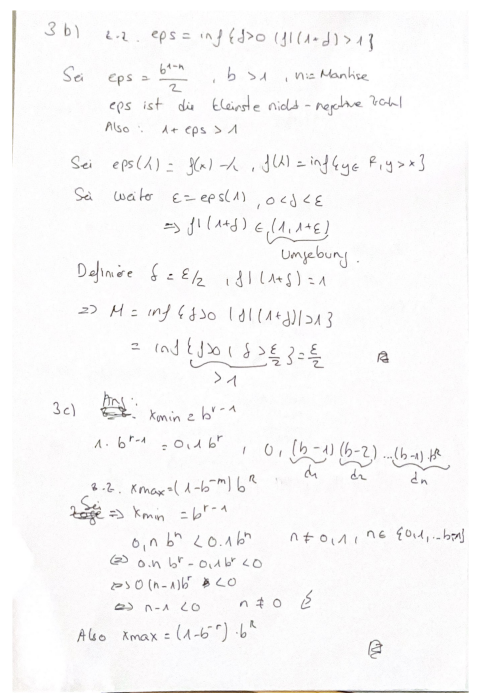 3 b) z.z. eps = inf {δ>0 | fl(1+δ) > 1}
Sei eps = b^{1-n}/2 , b > 1 , n = Mantisse
eps ist die kleinste nicht-negative Zahl
Also : 1+ eps > 1
Sei eps(λ) = f(x) - λ , f(λ) = inf{y ∈ F, y > x}
Sei weiter ε = eps(1) , 0 < δ < ε
=> fl(1+δ) ∈ (1, 1+ε)
Umgebung.
Definiere δ = ε/2 , fl(1+δ) = 1
=> M = inf {δ>0 | fl(1+δ)|>1}
= inf {δ>0 | δ > ε/2} = ε/2
> 1
3c) Ans: xmin = b^{r-1}
1. b^{r-1} = 0,1 b^r , 0, (b-1) (b-2) ... (b-1)
d1 d2 dn
z.z. xmax = (1-b^{-m}) b^R
Sei => xmin = b^{r-1}
0,n b^n < 0.1b^n n ≠ 0,1, n ∈ {0,1,..
<=> 0.n b^r - 0,1 b^r < 0
<=> 0 (n-1)b^r < 0
<=> n-1 < 0 n ≠ 0
Also xmax = (1-b^{-r}) · b^R